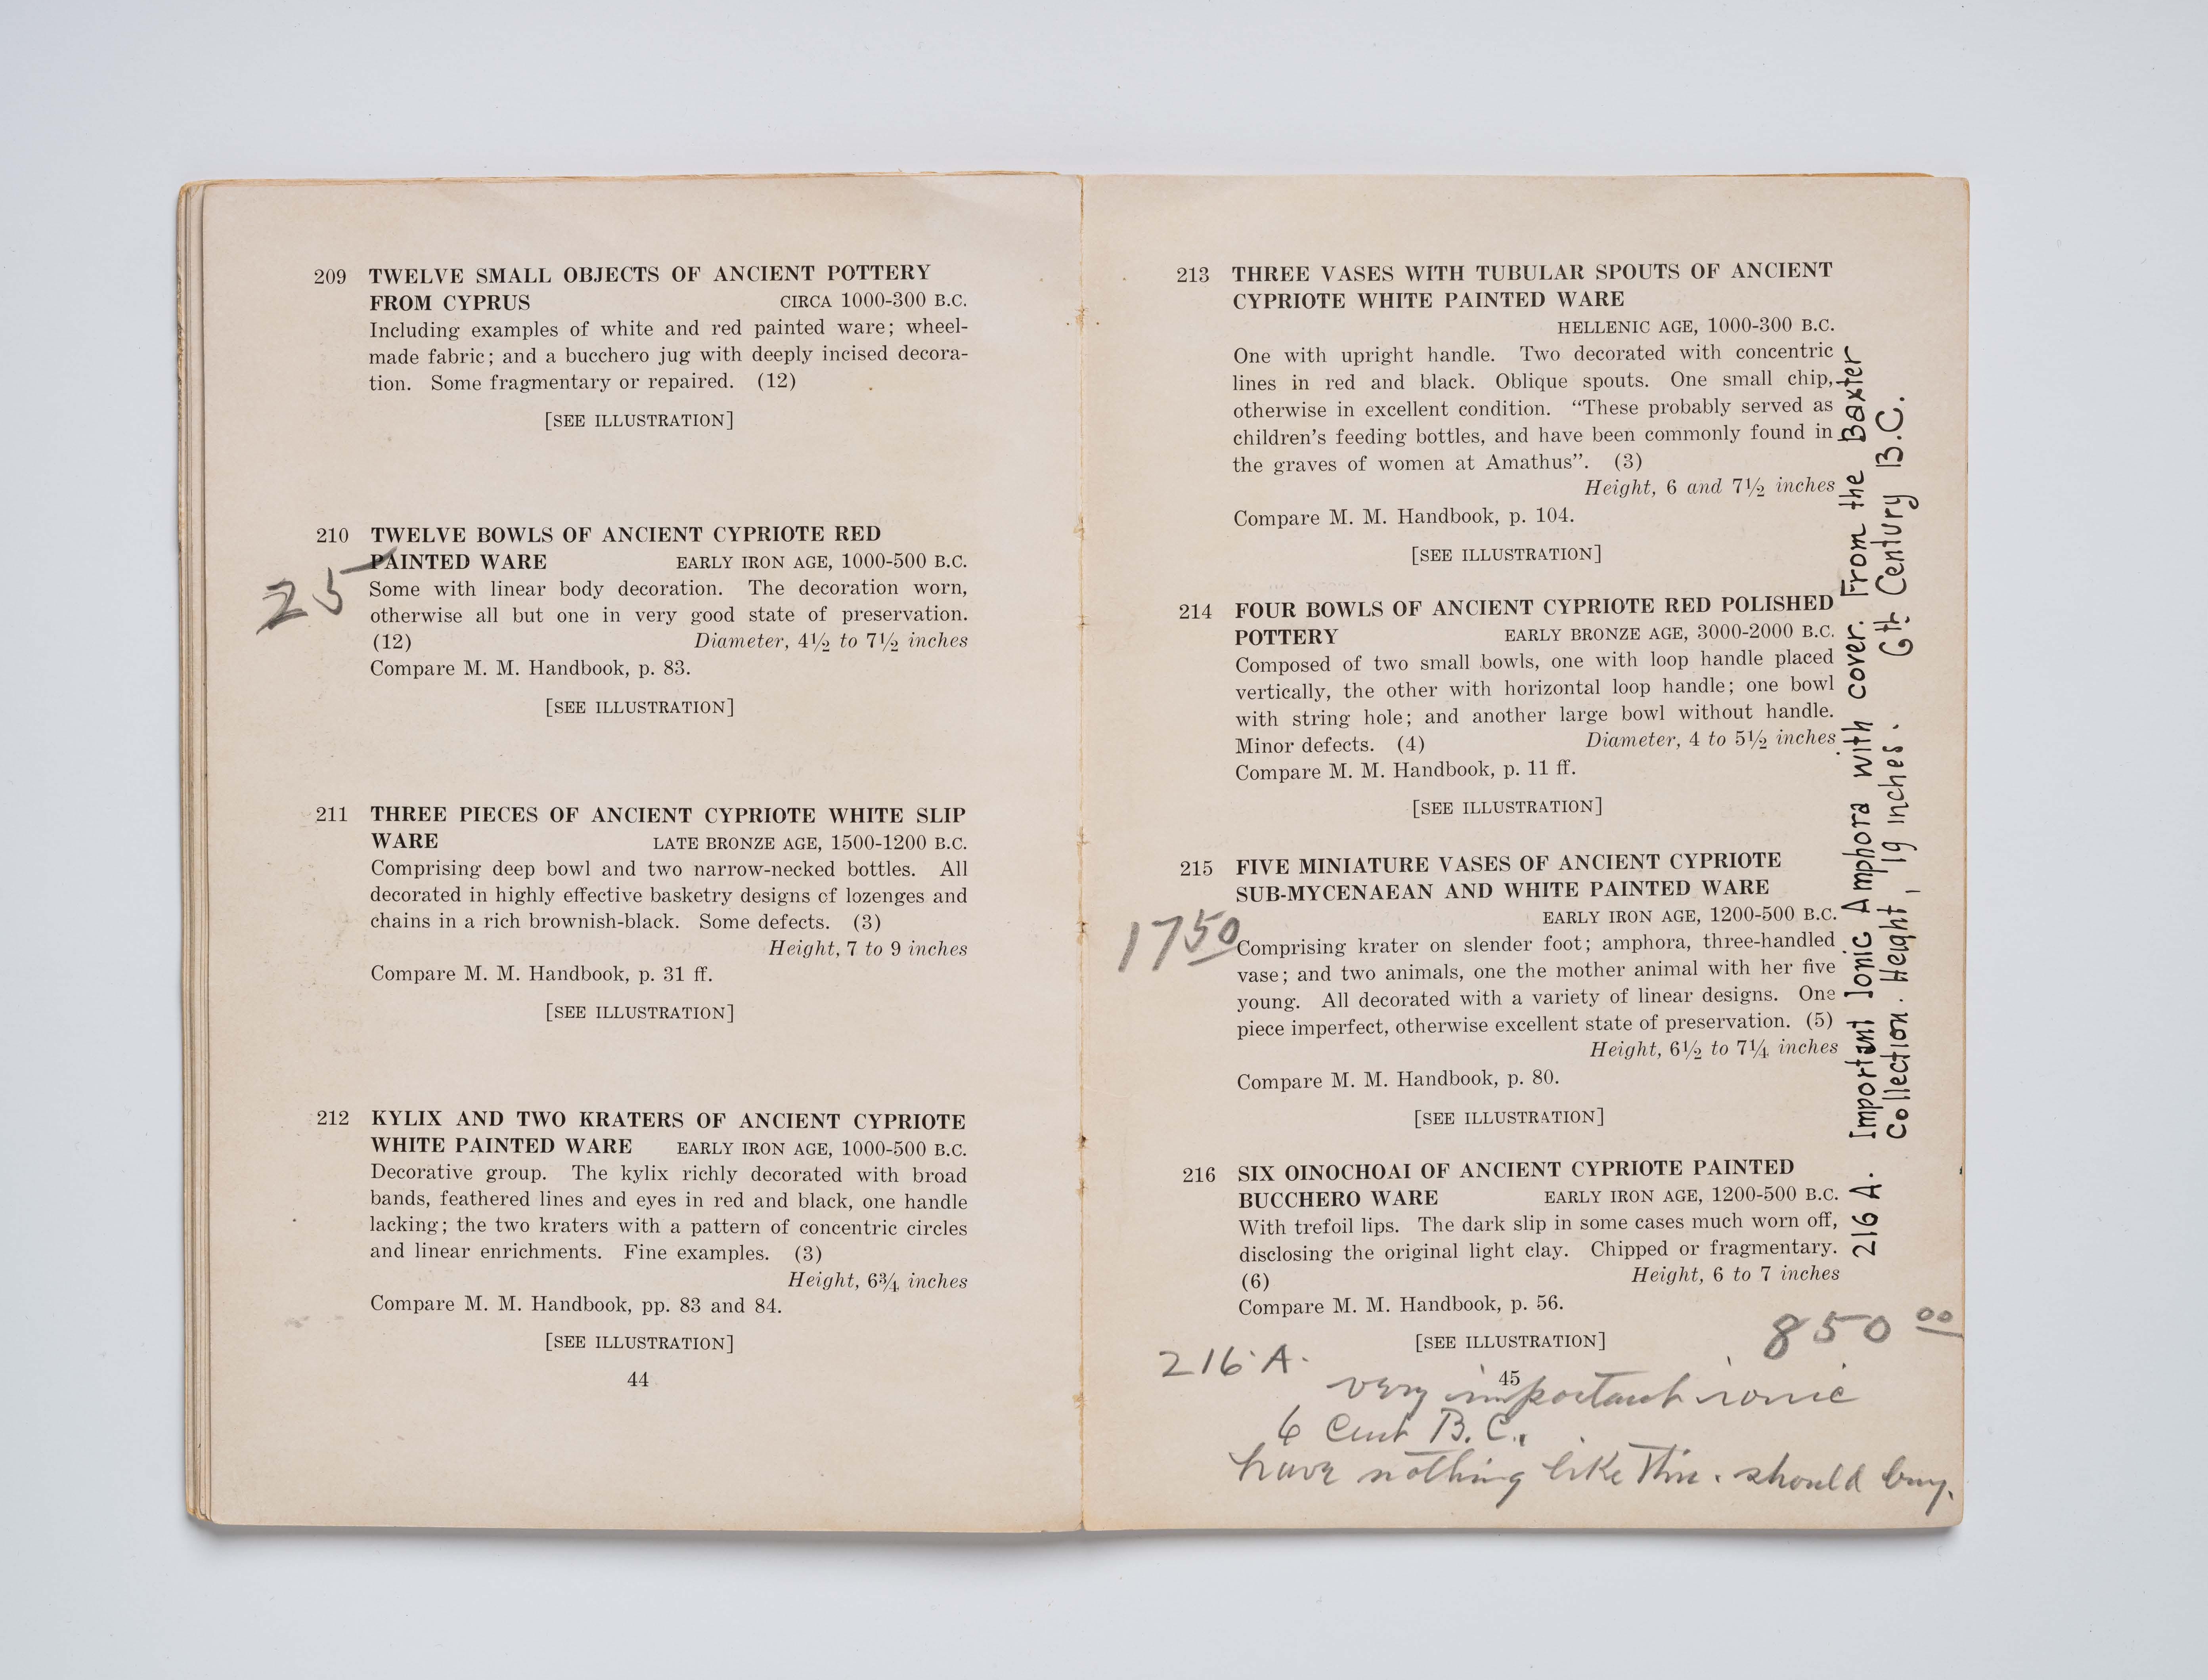 209 TWELVE SMALL OBJECTS OF ANCIENT POTTERY
FROM CYPRUS CIRCA 1000-300 B.C.
Including examples of white and red painted ware; wheel-
made fabric; and a bucchero jug with deeply incised decora-
tion. Some fragmentary or repaired. (12)
[SEE ILLUSTRATION]
210 TWELVE BOWLS OF ANCIENT CYPRIOTE RED
PAINTED WARE EARLY IRON AGE, 1000-500 B.C.
25-
Some with linear body decoration. The decoration worn,
otherwise all but one in very good state of preservation.
(12) Diameter, 4½ to 7½ inches
Compare M. M. Handbook, p. 83.
[SEE ILLUSTRATION]
211 THREE PIECES OF ANCIENT CYPRIOTE WHITE SLIP
WARE LATE BRONZE AGE, 1500-1200 B.C.
Comprising deep bowl and two narrow-necked bottles. All
decorated in highly effective basketry designs of lozenges and
chains in a rich brownish-black. Some defects. (3)
Height, 7 to 9 inches
Compare M. M. Handbook, p. 31 ff.
[SEE ILLUSTRATION]
212 KYLIX AND TWO KRATERS OF ANCIENT CYPRIOTE
WHITE PAINTED WARE EARLY IRON AGE, 1000-500 B.C.
Decorative group. The kylix richly decorated with broad
bands, feathered lines and eyes in red and black, one handle
lacking; the two kraters with a pattern of concentric circles
and linear enrichments. Fine examples. (3)
Height, 6¾ inches
Compare M. M. Handbook, pp. 83 and 84.
[SEE ILLUSTRATION]
44
213 THREE VASES WITH TUBULAR SPOUTS OF ANCIENT
CYPRIOTE WHITE PAINTED WARE
HELLENIC AGE, 1000-300 B.C.
One with upright handle. Two decorated with concentric
lines in red and black. Oblique spouts. One small chip,
otherwise in excellent condition. “These probably served as
children’s feeding bottles, and have been commonly found in
the graves of women at Amathus”. (3)
Height, 6 and 7½ inches
Compare M. M. Handbook, p. 104.
[SEE ILLUSTRATION]
214 FOUR BOWLS OF ANCIENT CYPRIOTE RED POLISHED
POTTERY EARLY BRONZE AGE, 3000-2000 B.C.
Composed of two small bowls, one with loop handle placed
vertically, the other with horizontal loop handle; one bowl
with string hole; and another large bowl without handle.
Minor defects. (4) Diameter, 4 to 5½ inches
Compare M. M. Handbook, p. 11 ff.
[SEE ILLUSTRATION]
215 FIVE MINIATURE VASES OF ANCIENT CYPRIOTE
SUB-MYCENAEAN AND WHITE PAINTED WARE
EARLY IRON AGE, 1200-500 B.C.
1750
Comprising krater on slender foot; amphora, three-handled
vase; and two animals, one the mother animal with her five
young. All decorated with a variety of linear designs. One
piece imperfect, otherwise excellent state of preservation. (5)
Height, 6½ to 7¼ inches
Compare M. M. Handbook, p. 80.
[SEE ILLUSTRATION]
216 SIX OINOCHOAI OF ANCIENT CYPRIOTE PAINTED
BUCCHERO WARE EARLY IRON AGE, 1200-500 B.C.
With trefoil lips. The dark slip in some cases much worn off,
disclosing the original light clay. Chipped or fragmentary.
(6) Height, 6 to 7 inches
Compare M. M. Handbook, p. 56.
[SEE ILLUSTRATION]
45
216 A. Important Ionic Amphora with cover. From the Baxter
Collection. Height, 19 inches. 6th Century B.C.
850 00
216 A.
very important ionic
6 Cent B.C.
have nothing like this. should buy.